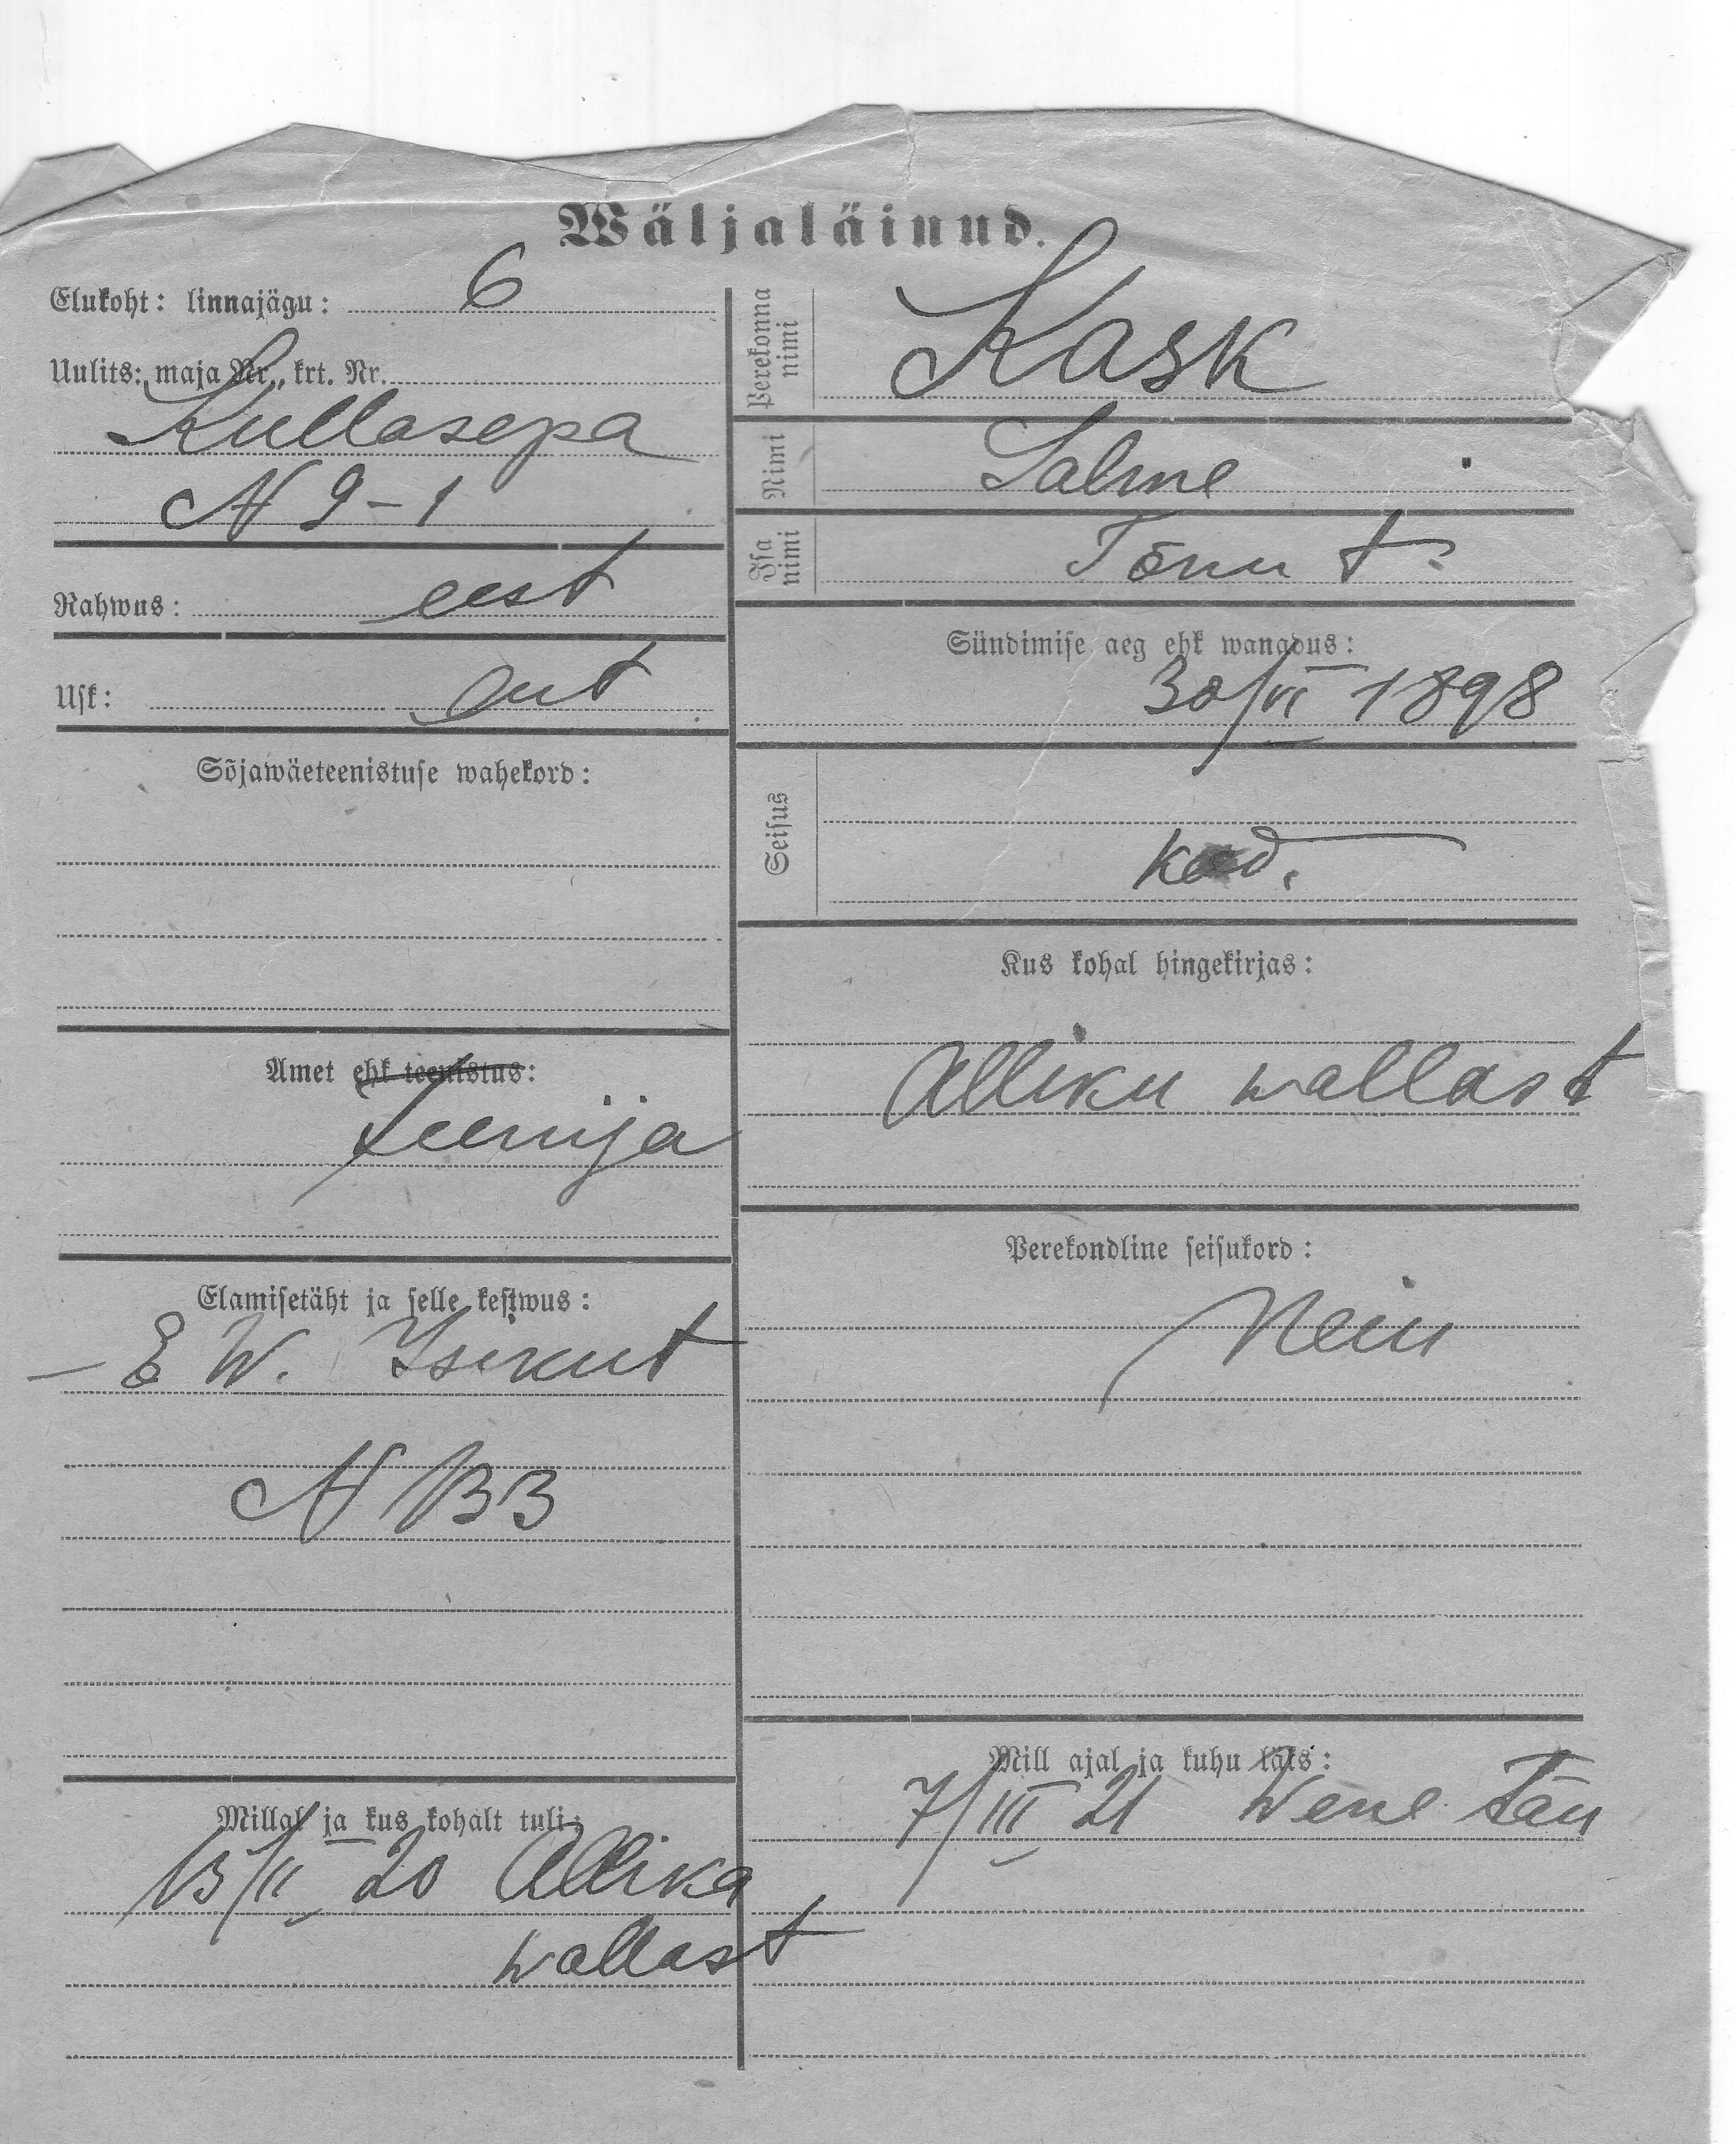 Wäljaläinud.
Elukoht: linnajägu: 6
Uulits: maja Nr., krt. Nr.
Kullasepa
N 9-1
Rahwus: eest
Usk: lut
Sõjawäeteenistuse wahekord:
Amet ehk teenistus:
teenija
Elamisetäht ja selle kestwus:
E W. Isikut
N 133
Millal ja kus kohalt tuli:
13/II 20 Allika
wallast
Perekonna nimi Kask
Nimi Salme
Isa nimi Tõnu t.
Sündimise aeg ehk wanadus:
30/VI 1898
Seisus
kod.
Kus kohal hingekirjas:
Alliku wallast
Perekondline seisukord:
Neiu
Mill ajal ja kuhu läks:
7/III 21 Wene tän